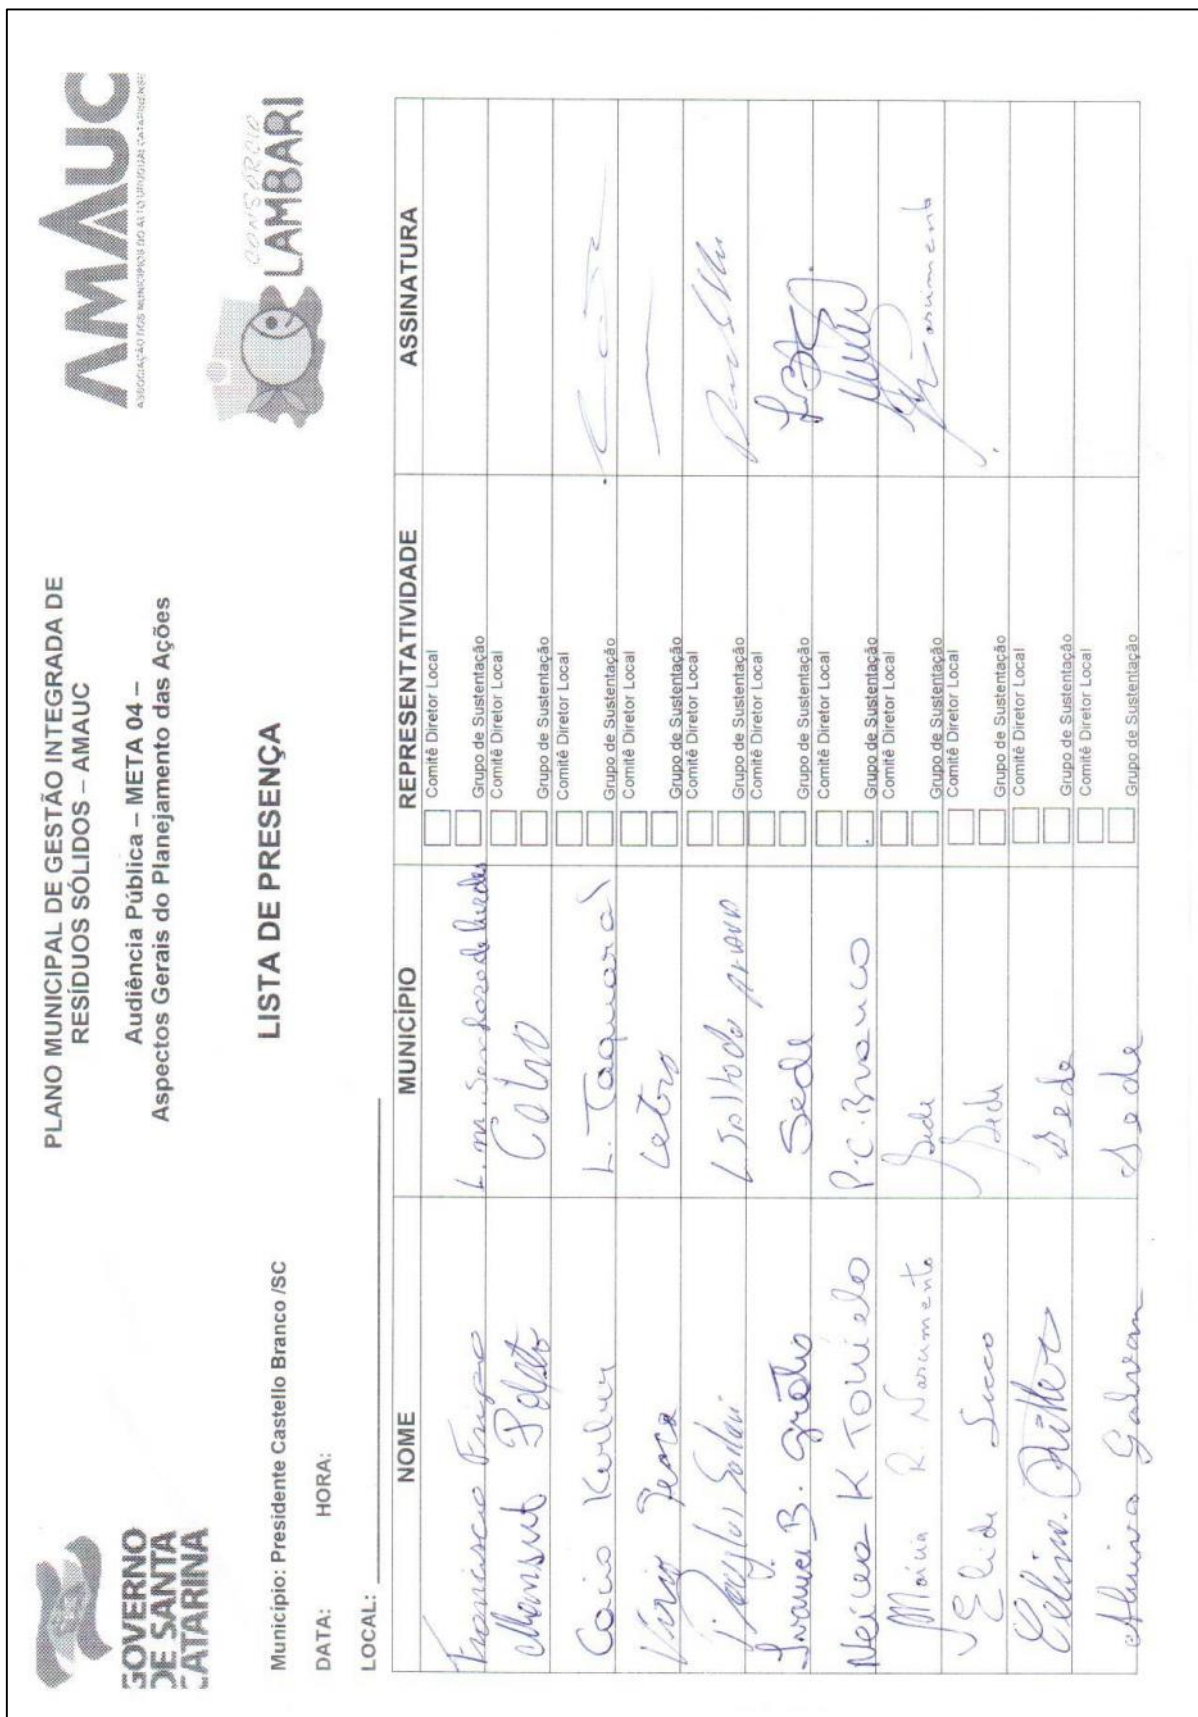 GOVERNO
DE SANTA
CATARINA
PLANO MUNICIPAL DE GESTÃO INTEGRADA DE
RESÍDUOS SÓLIDOS – AMAUC
Audiência Pública – META 04 –
Aspectos Gerais do Planejamento das Ações
AMAUC
ASSOCIAÇÃO DOS MUNICÍPIOS DO ALTO URUGUAI CATARINENSE
CONSÓRCIO
LAMBARI
LISTA DE PRESENÇA
Município: Presidente Castello Branco /SC
DATA: HORA:
LOCAL:
NOME MUNICÍPIO REPRESENTATIVIDADE ASSINATURA
Francisco L. m. Senhora de Lurdes Comitê Diretor Local
Grupo de Sustentação
Comitê Diretor Local
Grupo de Sustentação
Caio L. Taquaral Comitê Diretor Local
Grupo de Sustentação
Comitê Diretor Local
Grupo de Sustentação
Douglas Comitê Diretor Local
Grupo de Sustentação
Ivanei B. Sede Comitê Diretor Local
Grupo de Sustentação
Neiva K Tonielo P.C. Branco Comitê Diretor Local
Grupo de Sustentação
R. Nascimento Sede Comitê Diretor Local Nascimento
Grupo de Sustentação
Elide Sede Comitê Diretor Local
Grupo de Sustentação
Ritter Sede Comitê Diretor Local
Grupo de Sustentação
Galvan Sede Comitê Diretor Local
Grupo de Sustentação